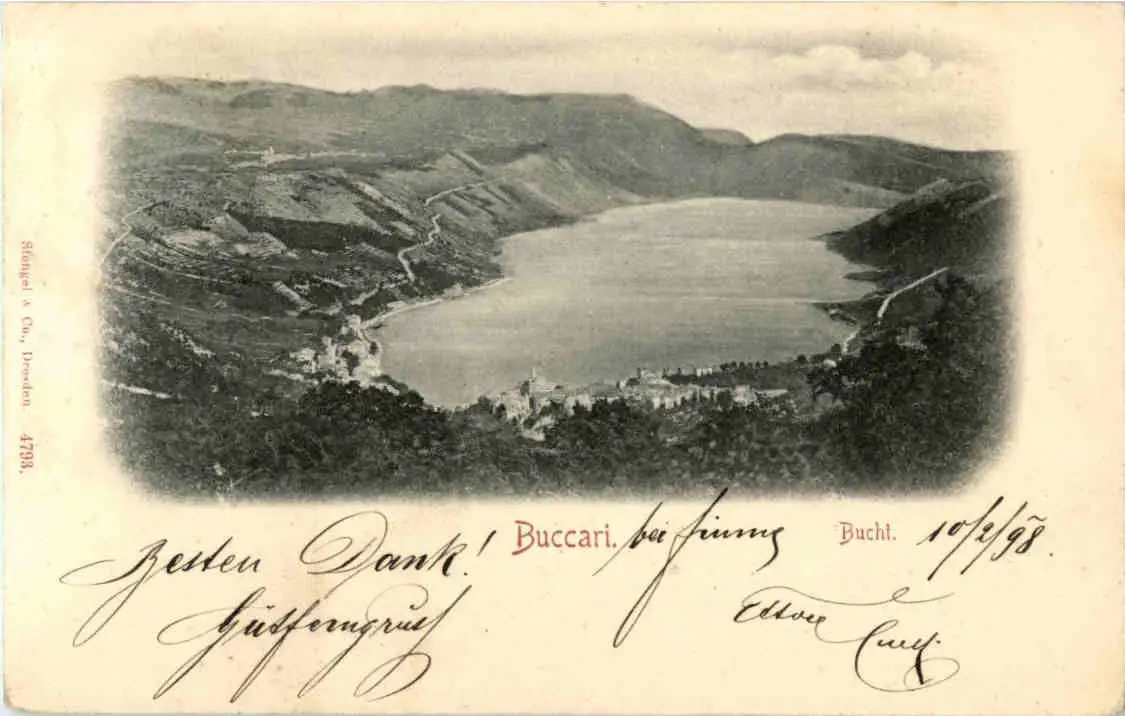 Stengel & Co., Dresden 4793.
Besten Dank! Buccari. bei Fiume Bucht. 10/2/98.
Ettore